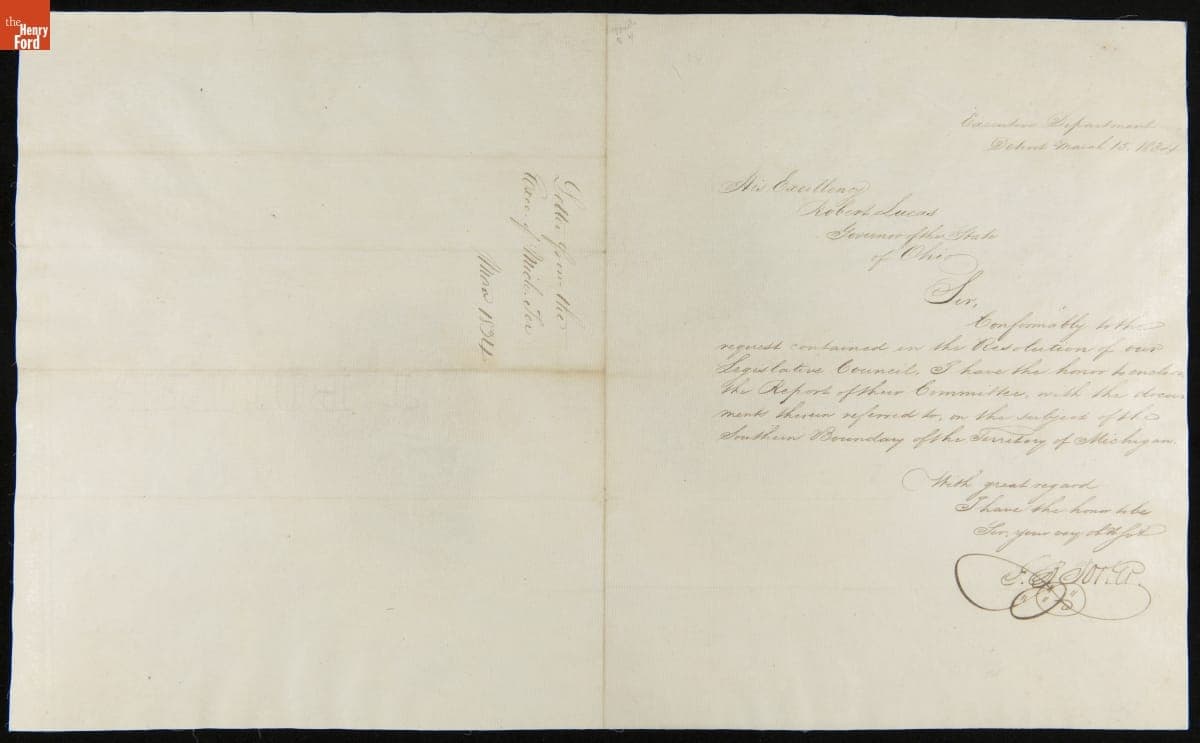 the
Henry
Ford
Letter from the
Exec of Mich. Ter
Mar 1834
Executive Department
Detroit March 15. 1834
His Excellency
Robert Lucas
Governor of the State
of Ohio
Sir,
Conformably to the
request contained in the Resolution of our
Legislative Council, I have the honor to enclose
the Report of their Committee, with the docu-
ments therein referred to, on the subject of the
Southern Boundary of the Territory of Michigan.
With great regard
I have the honor to be
Sir, your very obt Svt
G. B. Porter.